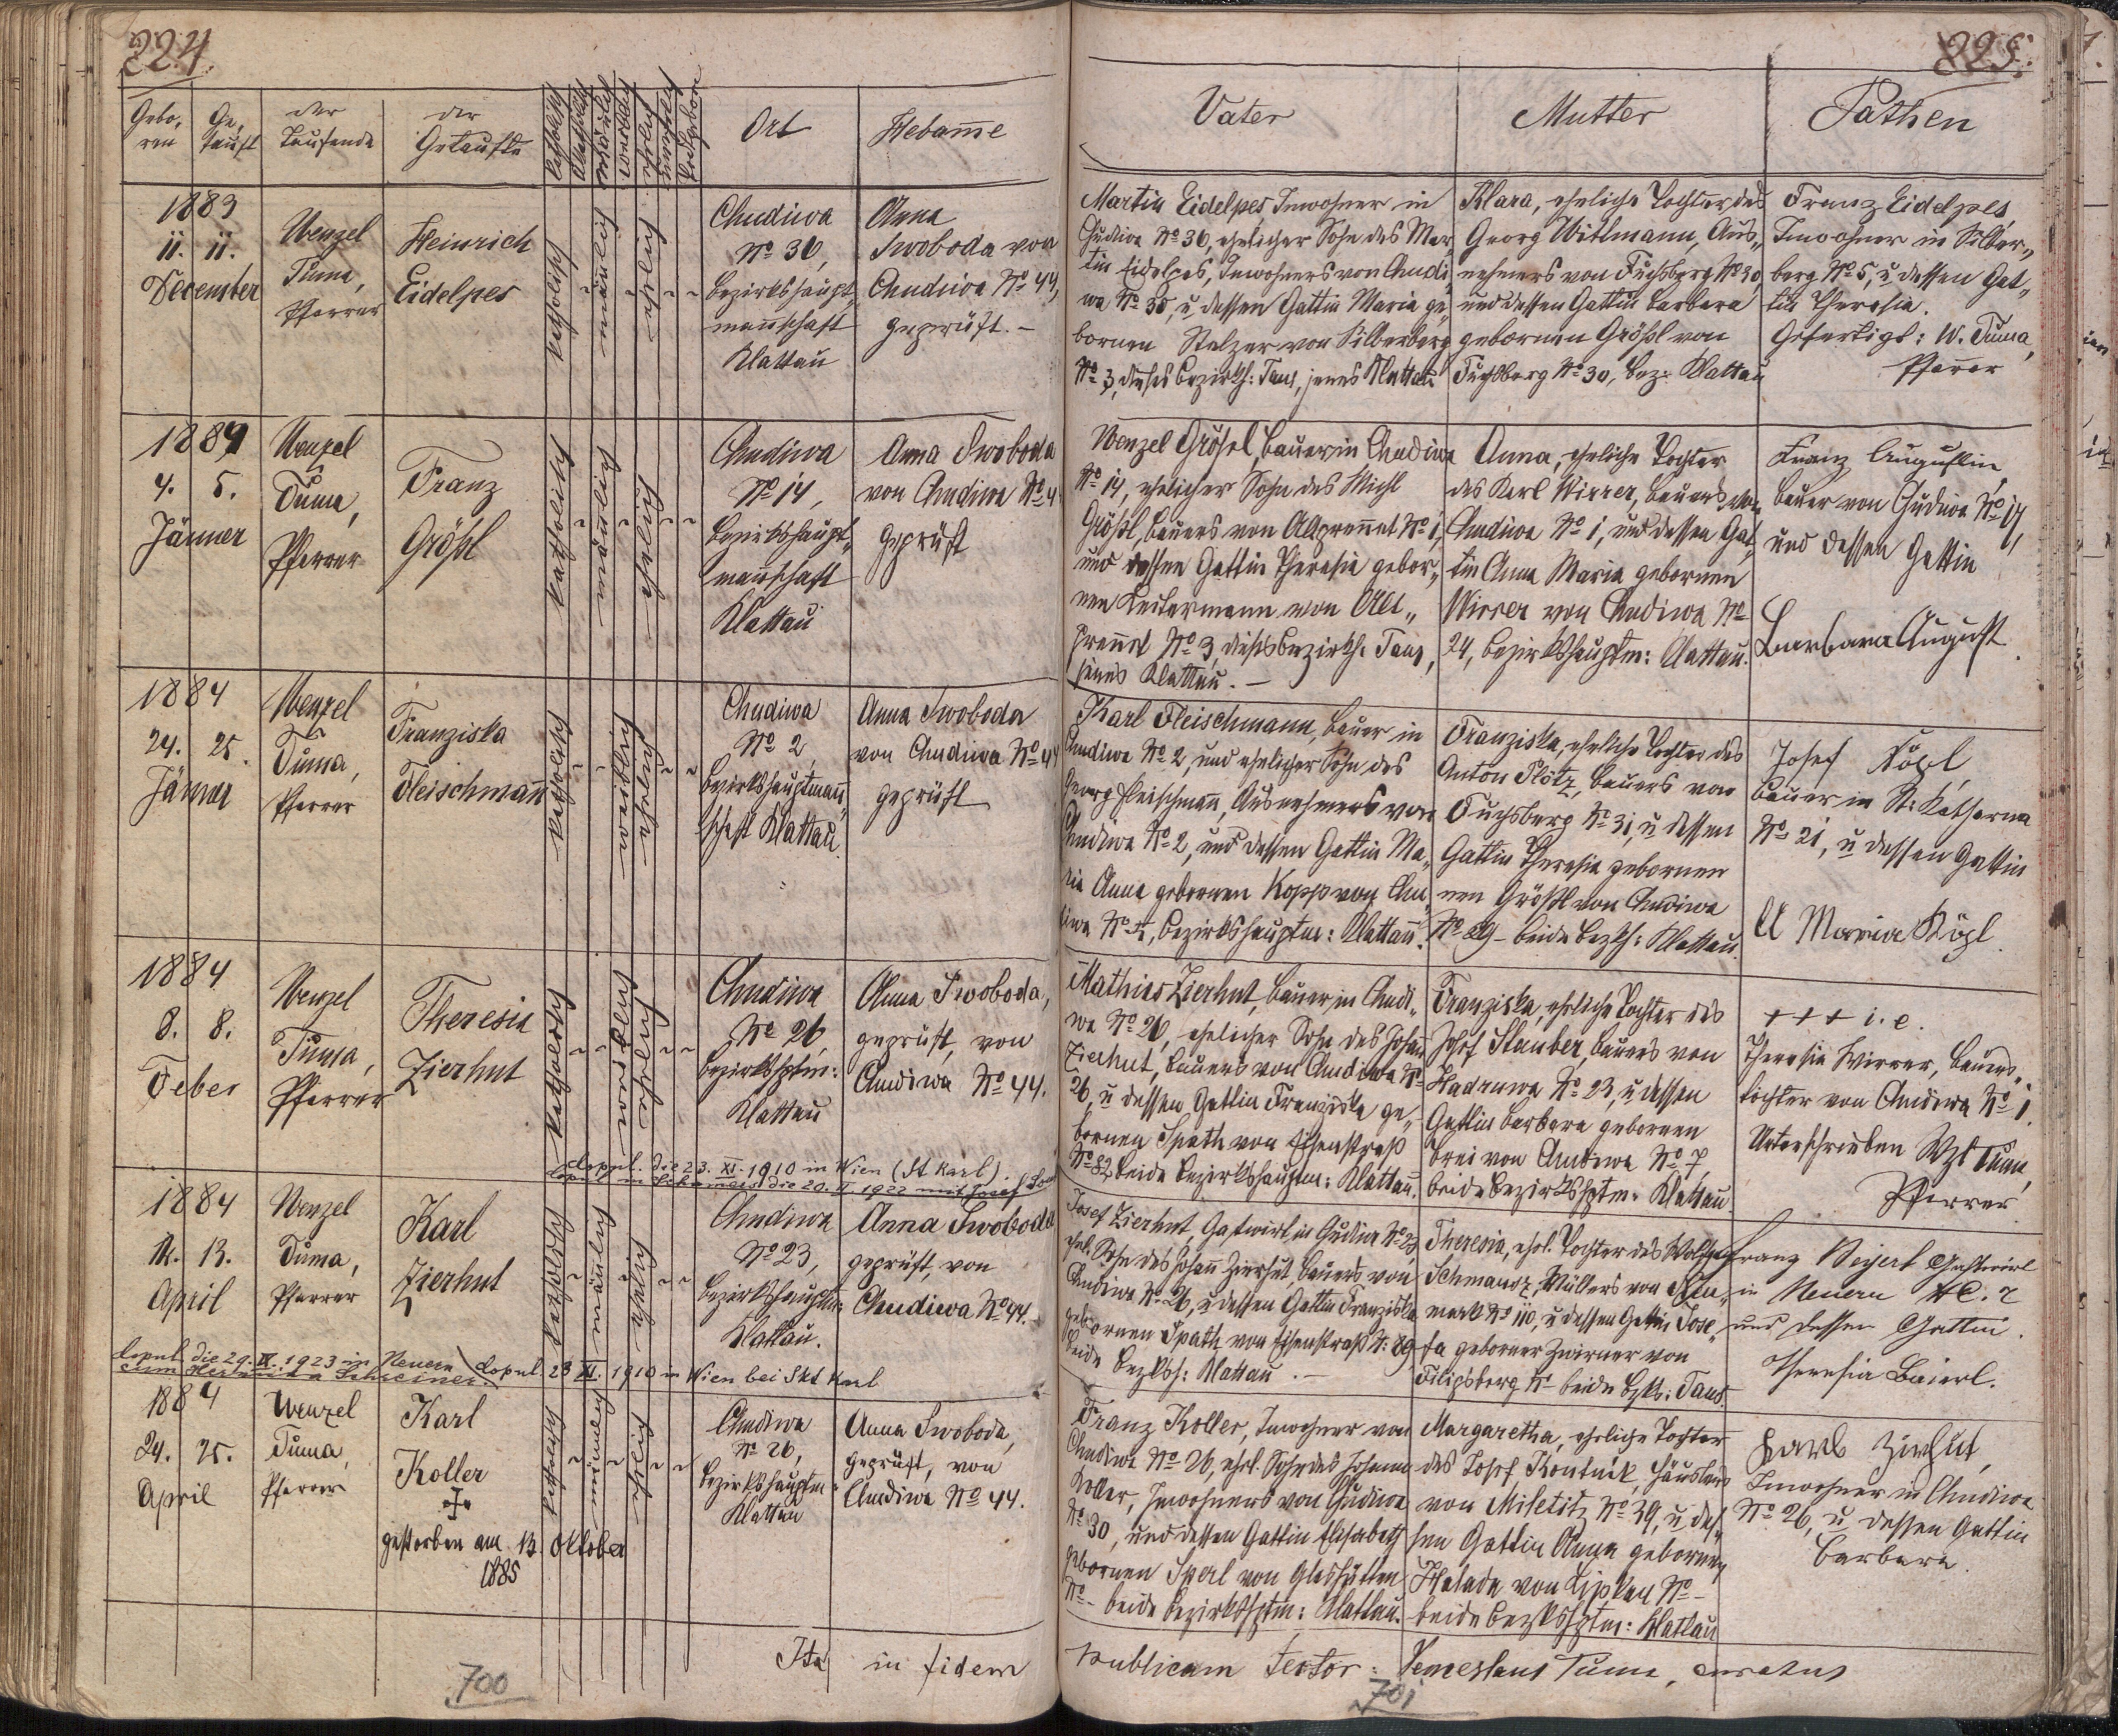 224.
225.
Gebo,
ren
Ge,
tauft
der
Taufende
der
Getaufte
katholisch
männlich
weiblich
ehelich
Ort
Hebam̄e
Vater
Mutter
Pathen
1883
11. 11.
December
Wenzel
Tuma,
Pfarrer
Heinrich
Eidelpes
katholisch
männlich
ehelich
Chudiwa
No 36,
Bezirkshaupt
mannschaft
Klattau
Anna
Swoboda von
Chudiwa No 44,
geprüft. –
Martin Eidelpes, Inwohner in
Chudiwa No 36, ehelicher Sohn des Mar
tin Eidelpes, Inwohners von Chudi
wa No 30, u. dessen Gattin Maria ge,
bornen Stelzer von Silberberg
No 3, dieses Bezirksh: Taus, jenes Klattau
Klara, eheliche Tochter des
Georg Witlmann, Aus„
nehmers von Fuchsberg No 30
und dessen Gattin Barbara
gebornen Größl von
Fuchsberg No 30, Bez: Klattau
Franz Eidelpes,
Inwohner in Silber„
berg No 5, u. dessen Gat„
tin Theresia.
Gefertigt: W. Tuma,
Pfarrer
1884
4. 5.
Jänner
Wenzel
Tuma,
Pfarrer
Franz
Größl
katholisch
männlich
ehelich
Chudiwa
No 14,
Bezirkshaupt„
mannschaft
Klattau
Anna Swoboda
von Chudiwa No 4
geprüft
Wenzel Größl, Bauer in Chudiwa
No 14, ehelicher Sohn des Michl
Größl, Bauers von Altprennet No 1,
und dessen Gattin Theresia gebor„
nen von Alt„
prennet No 3, dieses Bezirksh. Taus,
jenes Klattau. –
Anna, eheliche Tochter
des Karl Wirrer, Bauers von
Chudiwa No 1, und dessen Gat,
tin Anna Maria gebornen
Wirrer von Chudiwa No
24, Bezirkshauptm: Klattau.
Franz Augustin,
Bauer von Chudiwa No 17,
und dessen Gattin
Barbara August
1884
24. 25.
Jänner
Wenzel
Tuma,
Pfarrer
Franziska
Fleischmann
katholisch
weiblich
ehelich
Chudiwa
No 2
Bezirkshauptmann„
schaft Klattau.
Anna Swoboda
von Chudiwa No 44
geprüft
Karl Fleischmann, Bauer in
Chudiwa No 2, und ehelicher Sohn des
Georg Fleischmann, Ausnehmers von
Chudiwa No 2, und dessen Gattin Ma„
ria Anna gebornen Kopp von Chu
diwa No Bezirkshauptm: Klattau.
Franziska, eheliche Tochter des
Anton Plötz, Bauers von
Fuchsberg No 31, u dessen
Gattin Theresia gebornen
nen Größl von Chudiwa
No 29 – beide Bezksh: Klattau.
Josef Kögl,
Bauer in St: Katharina
No 21, u dessen Gattin
Maria Kögl.
1884
8. 8.
Feber
Wenzel
Tuma,
Pfarrer
Theresia
Zierhut
katholisch
weiblich
ehelich
Chudiwa
No 26,
Bezirkshptm:
Klattau
Anna Swoboda,
geprüft, von
Chudiwa No 44.
Mathias Zierhut, Bauer in Chudi„
wa No 26, ehelicher Sohn des Johann
Zierhut, Bauers von Chudiwa No
26, u dessen Gattin Franziska ge„
bornen Spath von Eisenstraß
No 82 beide Bezirkshauptm: Klattau.
Franziska, eheliche Tochter des
Josef Stauber, Bauers von
Hadruwa No 23, u dessen
Gattin Barbara gebornen
Brei von Chudiwa No 7,
beide Bezirkshptm: Klattau
+++ i. e.
Theresia Wirrer, Bauers„
tochter von Chudiwa No 1.
Unterschrieben Wzl Tuma,
Pfarrer
Copul. die 23. XI. 1910 in Wien (St Karl).
die 20. II. 1922 mit Josef
1884
12. 13.
April
Wenzel
Tuma,
Pfarrer
Karl
Zierhut
katholisch
männlich
ehelich
Chudiwa
No 23,
Bezirkshauptm:
Klattau.
Anna Swoboda
geprüft, von
Chudiwa No 44.
Josef Zierhut, Gastwirt in Chudiwa No 23,
ehel. Sohn des Johann Zierhut Bauers von
Chudiwa No 26, u dessen Gattin Franziska
gebornen Spath von Eisenstraß N: 89
beide Bezksh: Klattau. –
Theresia, ehel. Tochter des Wolfgang
Schmausz, Müllers von Neu„
mark No 110, u dessen Gattin Jose„
fa geborner Zwirner von
Filipsberg No beide Bzks: Taus.
Franz Beyerl Gastwirt
in Neuern
und dessen Gattin.
Theresia Baierl.
Copul die 29. IX. 1923 in Neuern
cum Schreiner.
Copul. 23 XI. 1910 in Wien bei Skt Karl
1884
24. 25.
April
Wenzel
Tuma,
Pfarrer
Karl
Koller
gestorben am 13. Oktober
1885
katholisch
männlich
ehelich
Chudiwa
No 26,
Bezirkshauptm:
Klattau
Anna Swoboda,
geprüft, von
Chudiwa No 44.
Franz Koller, Inwohner von
Chudiwa No 26, ehel. Sohn des Johann
Koller, Inwohners von Chudiwa
No 30, und dessen Gattin Elisabeth
gebornen Sperl von Glashütten
No – beide Bezirkshptm: Klattau.
Margaretha, eheliche Tochter
des Josef Koutnik, Häuslers
von Miletitz No 39, u des„
sen Gattin Anna gebornen
Halada von Lipkau No –
beide Bezkshptm: Klattau
Karl Zirhut,
Inwohner in Chudiwa
No 26, u dessen Gattin
Barbara.
Ita in fidem publicam testor: Wenceslaus Tuma, curatus
700
701